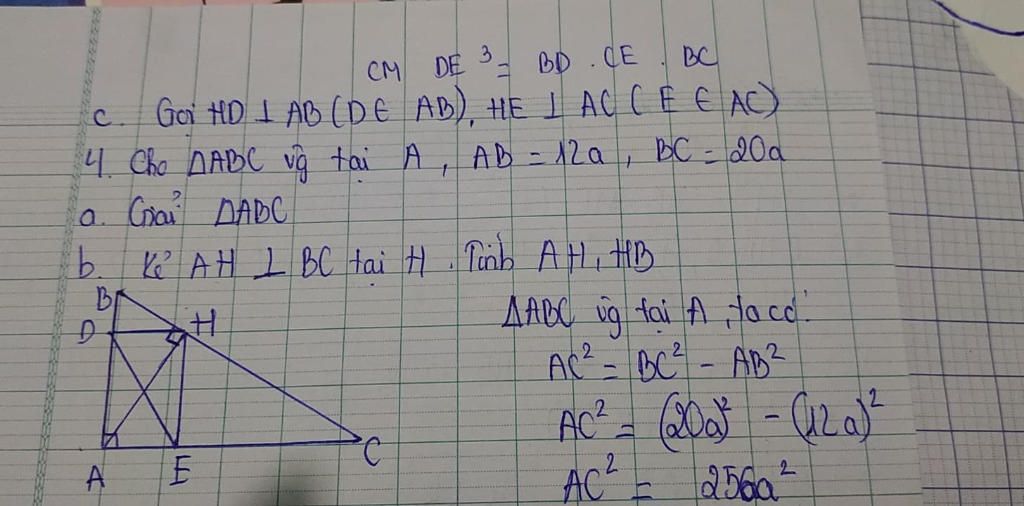 CM DE³ = BD . CE . BC
c. Gọi HD ⊥ AB (D ∈ AB), HE ⊥ AC (E ∈ AC)
4. Cho ΔABC vg tại A, AB = 12a, BC = 20a
a. Giải ΔABC
b. Kẻ AH ⊥ BC tại H. Tính AH, HB
B
D
H
A
E
C
ΔABC vg tại A, ta có:
AC² = BC² - AB²
AC² = (20a)² - (12a)²
AC² = 256a²